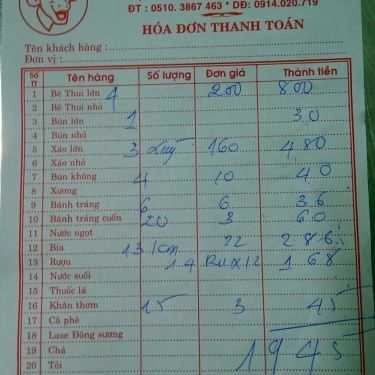 ĐT : 0510. 3867 463 * DĐ: 0914.020.719
HÓA ĐƠN THANH TOÁN
Tên khách hàng :
Đơn vị :
Số TT Tên hàng Số lượng Đơn giá Thành tiền
1 Bê Thui lớn 4 200 800
2 Bê Thui nhỏ
3 Bún lớn 1 30
4 Bún nhỏ
5 Xào lớn 3 160 480
6 Xào nhỏ
7 Bún không 4 10 40
8 Xương
9 Bánh tráng 6 6 36
10 Bánh tráng cuốn 20 3 60
11 Nước ngọt
12 Bia 13 lon 22 286
13 Rượu 14 x 12 168
14 Nước suối
15 Thuốc lá
16 Khăn thơm 15 3 45
17 Cà phê
18 Lase Đông sương
19 Chả
20 Tỏi
1945